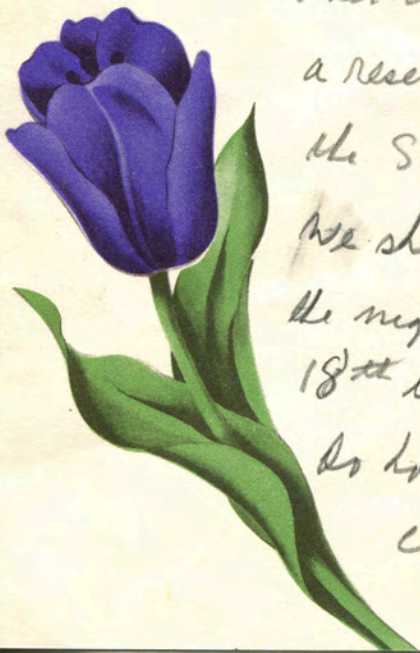 a rese
the S
We sh
the nig
18th
Do ho
c